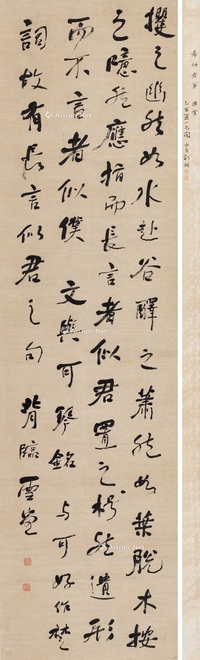 攫之幽然如水赴谷醳之蕭然如葉脫木按
之噫然應指而長言者似君置之枵然遺形
而不言者似僕 文與可琴銘 与可好作楚
詞故有長言似君之句 背臨雪堂